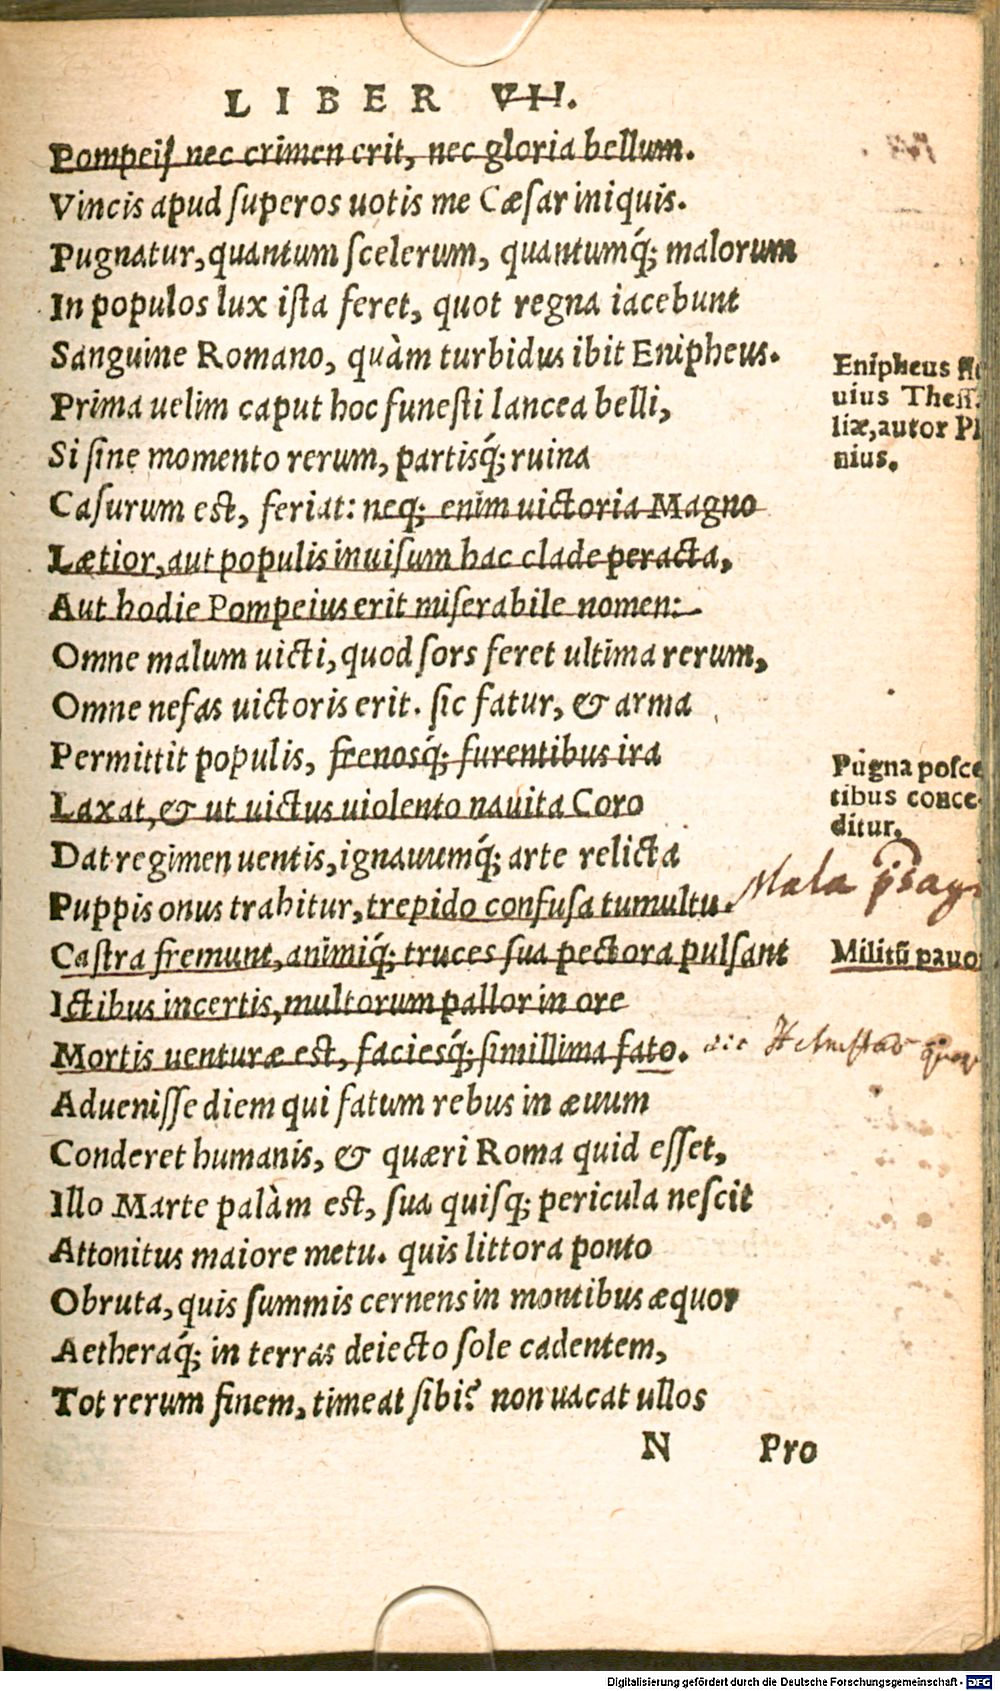 LIBER VII.
Pompeij nec crimen erit, nec gloria bellum.
Vincis apud superos uotis me Cæsar iniquis.
Pugnatur, quantum scelerum, quantumq́; malorum
In populos lux ista feret, quot regna iacebunt
Sanguine Romano, quàm turbidus ibit Enipheus.
Enipheus
uius Thess
liæ, autor Pl
nius.
Prima uelim caput hoc funesti lancea belli,
Si sine momento rerum, partisq́; ruina
Casurum est, feriat: neq; enim uictoria Magno
Lætior, aut populis inuisum hac clade peracta,
Aut hodie Pompeius erit miserabile nomen:
Omne malum uicti, quod sors feret ultima rerum,
Omne nefas uictoris erit. sic fatur, & arma
Permittit populis, frenosq́; furentibus ira
Pugna posce
tibus conce
ditur.
Laxat, & ut uictus uiolento nauita Coro
Dat regimen uentis, ignauumq́; arte relicta
Puppis onus trahitur, trepido confusa tumultu.
Mala
Castra fremunt, animiq́; truces sua pectora pulsant
Militū pauo
Ictibus incertis, multorum pallor in ore
Mortis uenturæ est, faciesq́; simillima fato.
Aduenisse diem qui fatum rebus in æuum
Conderet humanis, & quæri Roma quid esset,
Illo Marte palàm est, sua quisq; pericula nescit
Attonitus maiore metu. quis littora ponto
Obruta, quis summis cernens in montibus æquor
Aetheraq́; in terras deiecto sole cadentem,
Tot rerum finem, timeat sibi? non uacat ullos
N Pro
Digitalisierung gefördert durch die Deutsche Forschungsgemeinschaft - DFG